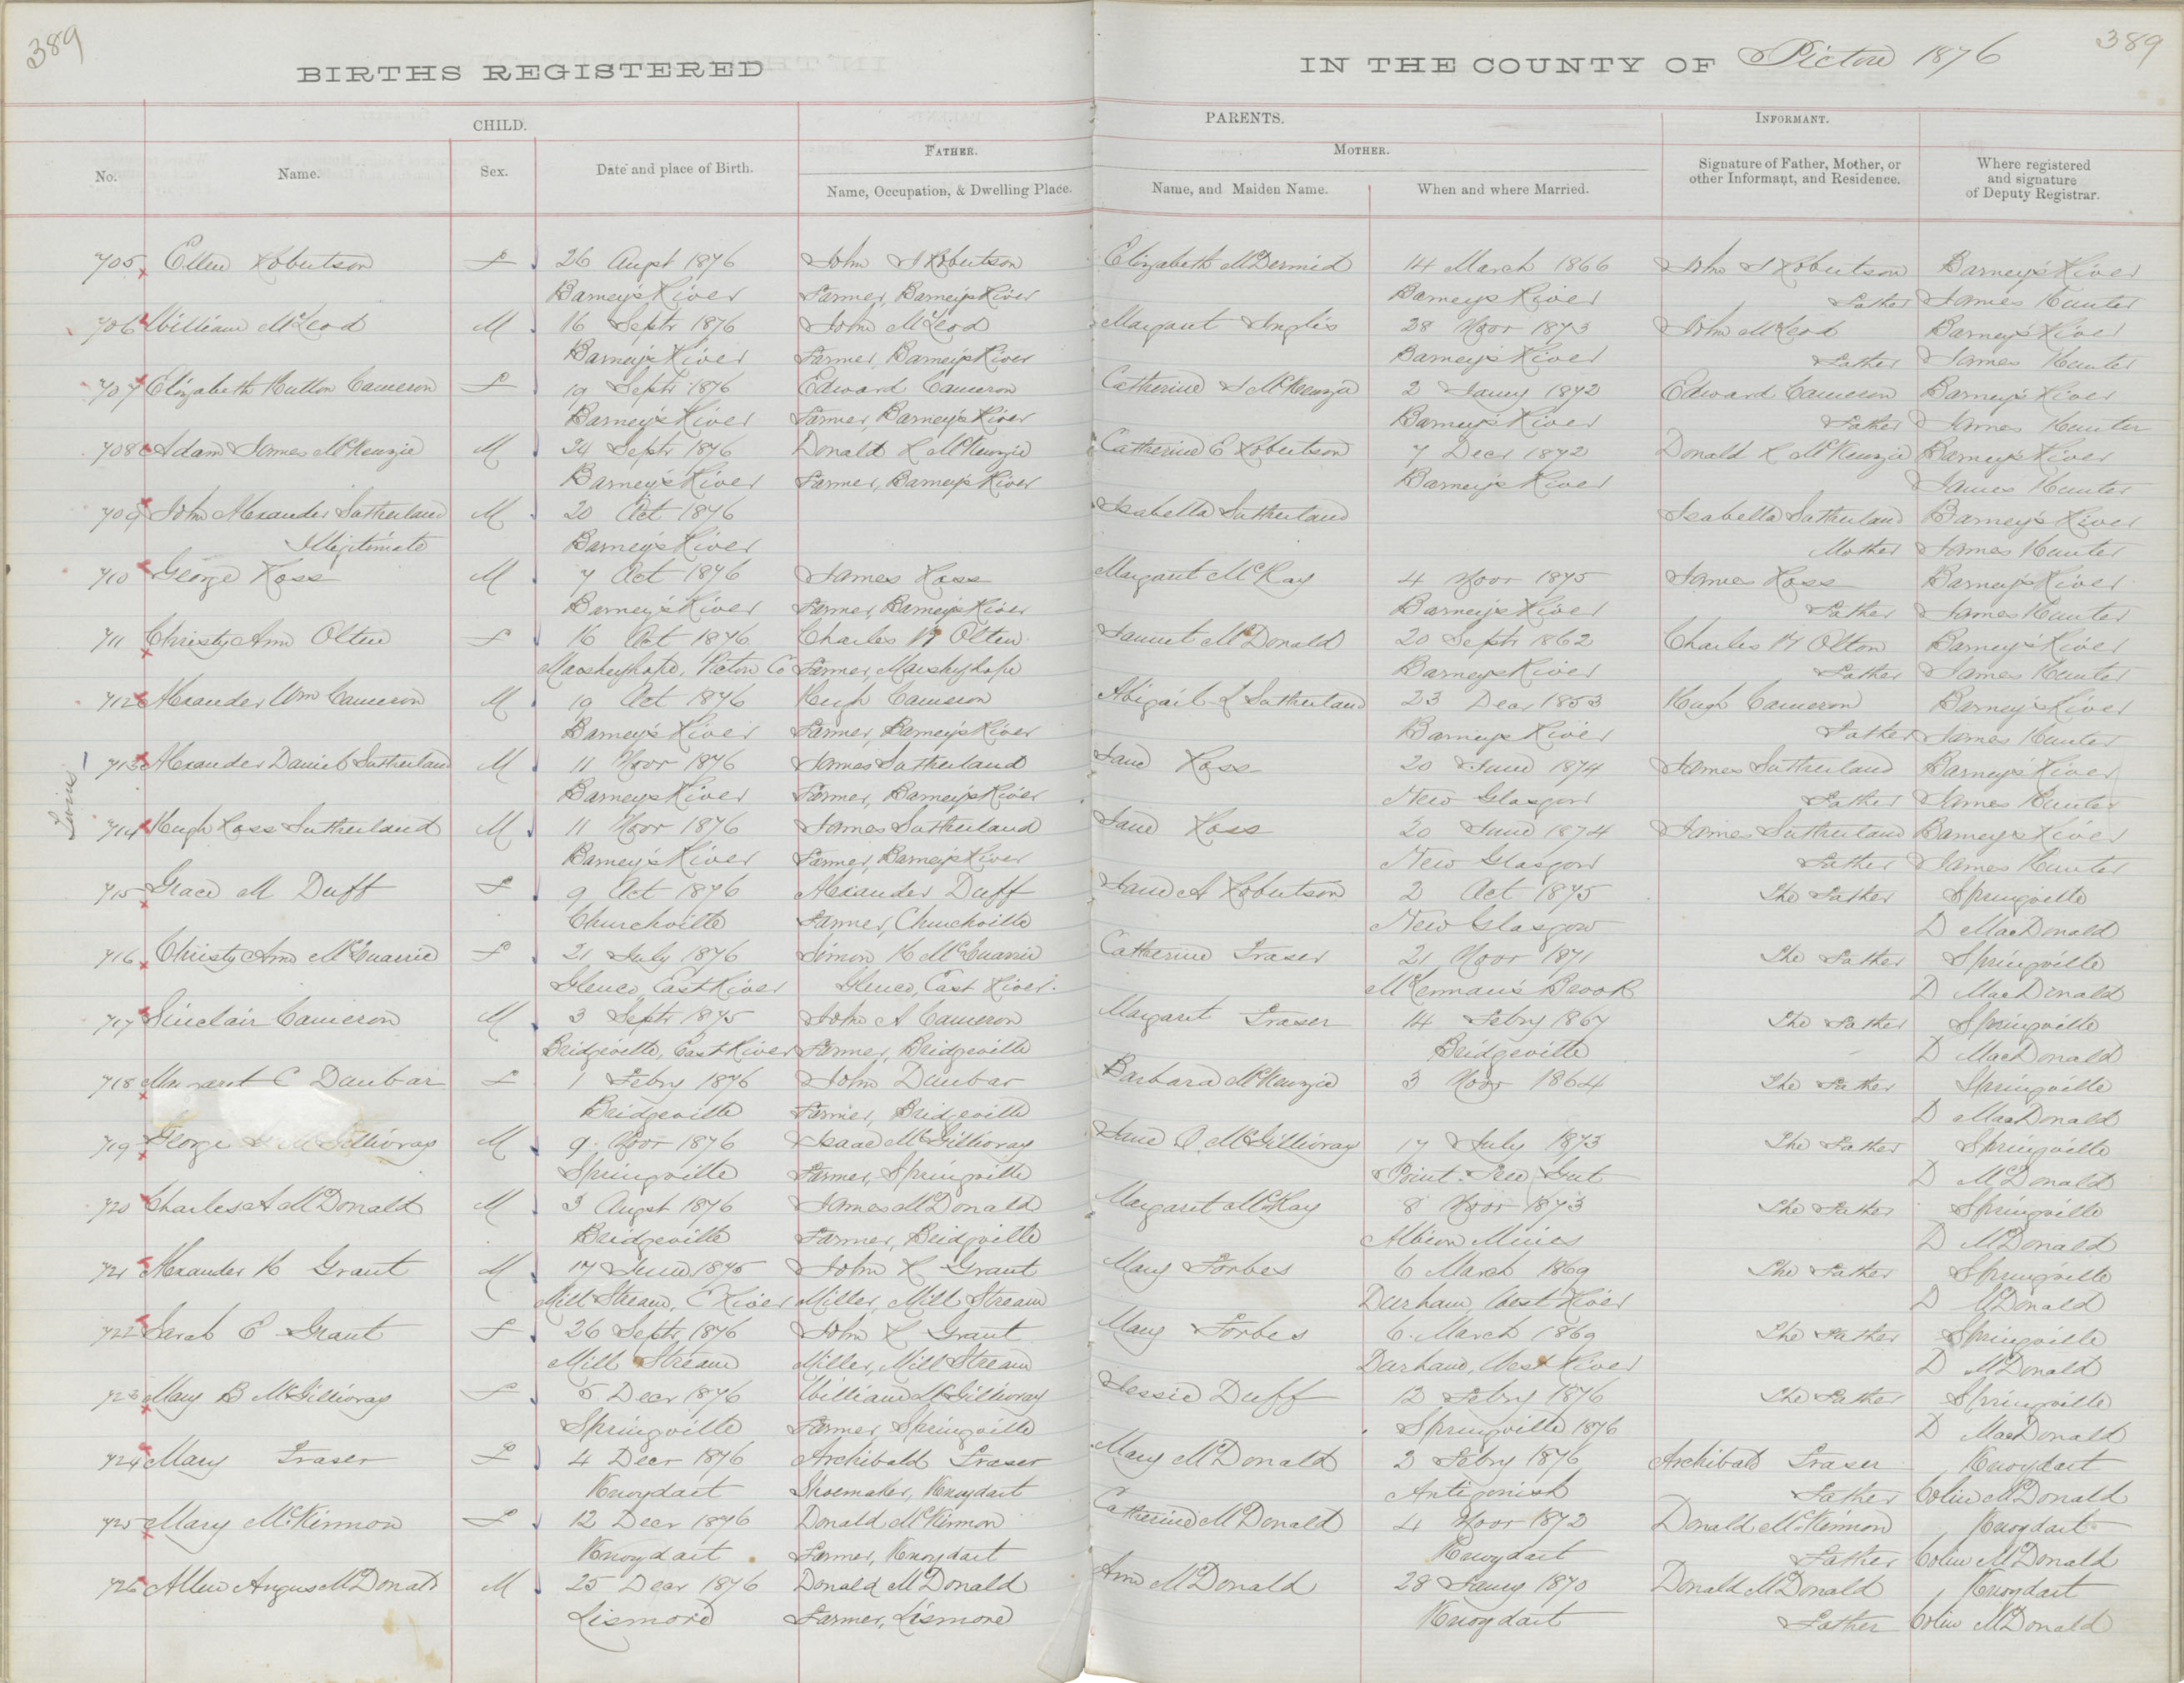 389
BIRTHS REGISTERED
IN THE COUNTY OF Pictou 1876
389
CHILD.
PARENTS.
INFORMANT.
No.
Name.
Sex.
Date and place of Birth.
FATHER.
Name, Occupation, & Dwelling Place.
MOTHER.
Name, and Maiden Name.
When and where Married.
Signature of Father, Mother, or other Informant, and Residence.
Where registered and signature of Deputy Registrar.
705 Ellen Robertson F 26 Augst 1876 John J Robertson Elizabeth McDermid 14 March 1866 John J Robertson Barney's River
Barney's River Farmer, Barney's River Barney's River Father James Hunter
706 William McLeod M 16 Septr 1876 John McLeod Margaret Inglis 28 Novr 1873 John McLeod Barney's River
Barney's River Farmer, Barney's River Barney's River Father James Hunter
707 Elizabeth Hatton Cameron F 19 Septr 1876 Edward Cameron Catherine J McKenzie 2 Jany 1872 Edward Cameron Barney's River
Barney's River Farmer, Barney's River Barney's River Father James Hunter
708 Adam James McKenzie M 24 Septr 1876 Donald R McKenzie Catherine E Robertson 7 Decr 1872 Donald R McKenzie Barney's River
Barney's River Farmer, Barney's River Barney's River James Hunter
709 John Alexander Sutherland M 20 Oct 1876 Isabella Sutherland Isabella Sutherland Barney's River
Illigitimate Barney's River Mother James Hunter
710 George Ross M 7 Oct 1876 James Ross Margaret McKay 4 Novr 1875 James Ross Barney's River
Barney's River Farmer, Barney's River Barney's River Father James Hunter
711 Christy Ann Olten F 16 Oct 1876 Charles Olten Jannet McDonald 20 Septr 1862 Charles Olton Barney's River
Marshyhope, Pictou Co Farmer, Marshyhope Barney's River Father James Hunter
712 Alexander Wm Cameron M 19 Oct 1876 Hugh Cameron Abigail L Sutherland 23 Decr 1853 Hugh Cameron Barney's River
Barney's River Farmer, Barney's River Barney's River Father James Hunter
Twins
713 Alexander Daniel Sutherland M 11 Novr 1876 James Sutherland Jane Ross 20 June 1874 James Sutherland Barney's River
Barney's River Farmer, Barney's River New Glasgow Father James Hunter
714 Hugh Ross Sutherland M 11 Novr 1876 James Sutherland Jane Ross 20 June 1874 James Sutherland Barney's River
Barney's River Farmer, Barney's River New Glasgow Father James Hunter
715 Grace M Duff F 9 Oct 1876 Alexander Duff Jane A Robertson 2 Oct 1875 The Father Springville
Churchville Farmer, Churchville New Glasgow D MacDonald
716 Christy Ann McQuarrie F 21 July 1876 Simon H McQuarrie Catherine Fraser 21 Novr 1871 The Father Springville
Glenco, East River Glenco, East River. McLennan's Brook D MacDonald
717 Sinclair Cameron M 3 Septr 1875 John A Cameron Margaret Fraser 14 Febry 1867 The Father Springville
Bridgeville, East River Farmer, Bridgeville Bridgeville D MacDonald
718 Margaret C Dunbar F 1 Febry 1876 John Dunbar Barbara McKenzie 3 Novr 1864 The Father Springville
Bridgeville Farmer, Bridgeville D MacDonald
719 George McGillivray M 9 Novr 1876 Isaac McGillivray Jane McGillivray 17 July 1873 The Father Springville
Springville Farmer, Springville Point Gut D McDonald
720 Charles A McDonald M 3 Augst 1876 James McDonald Margaret McKay 8 Novr 1873 The Father Springville
Bridgeville Farmer, Bridgville Albion Mines D McDonald
721 Alexander H Grant M 17 June 1875 John R Grant Mary Forbes 6 March 1869 The Father Springville
Mill Stream, E River Miller, Mill Stream Durham, West River D McDonald
722 Sarah E Grant F 26 Septr 1876 John R Grant Mary Forbes 6 March 1869 The Father Springville
Mill Stream Miller, Mill Stream Durham, West River D McDonald
723 Mary B McGillivray F 5 Decr 1876 William McGillivray Jessie Duff 12 Febry 1876 The Father Springville
Springville Farmer, Springville Springville 1876 D MacDonald
724 Mary Fraser F 4 Decr 1876 Archibald Fraser Mary McDonald 2 Febry 1876 Archibald Fraser Knoydart
Knoydart Shoemaker, Knoydart Antigonish Father Colin McDonald
725 Mary McKinnon F 12 Decr 1876 Donald McKinnon Catherine McDonald 4 Novr 1872 Donald McKinnon Knoydart
Knoydart Farmer, Knoydart Knoydart Father Colin McDonald
726 Allen Angus McDonald M 25 Decr 1876 Donald McDonald Ann McDonald 28 Jany 1870 Donald McDonald Knoydart
Lismore Farmer, Lismore Knoydart Father Colin McDonald